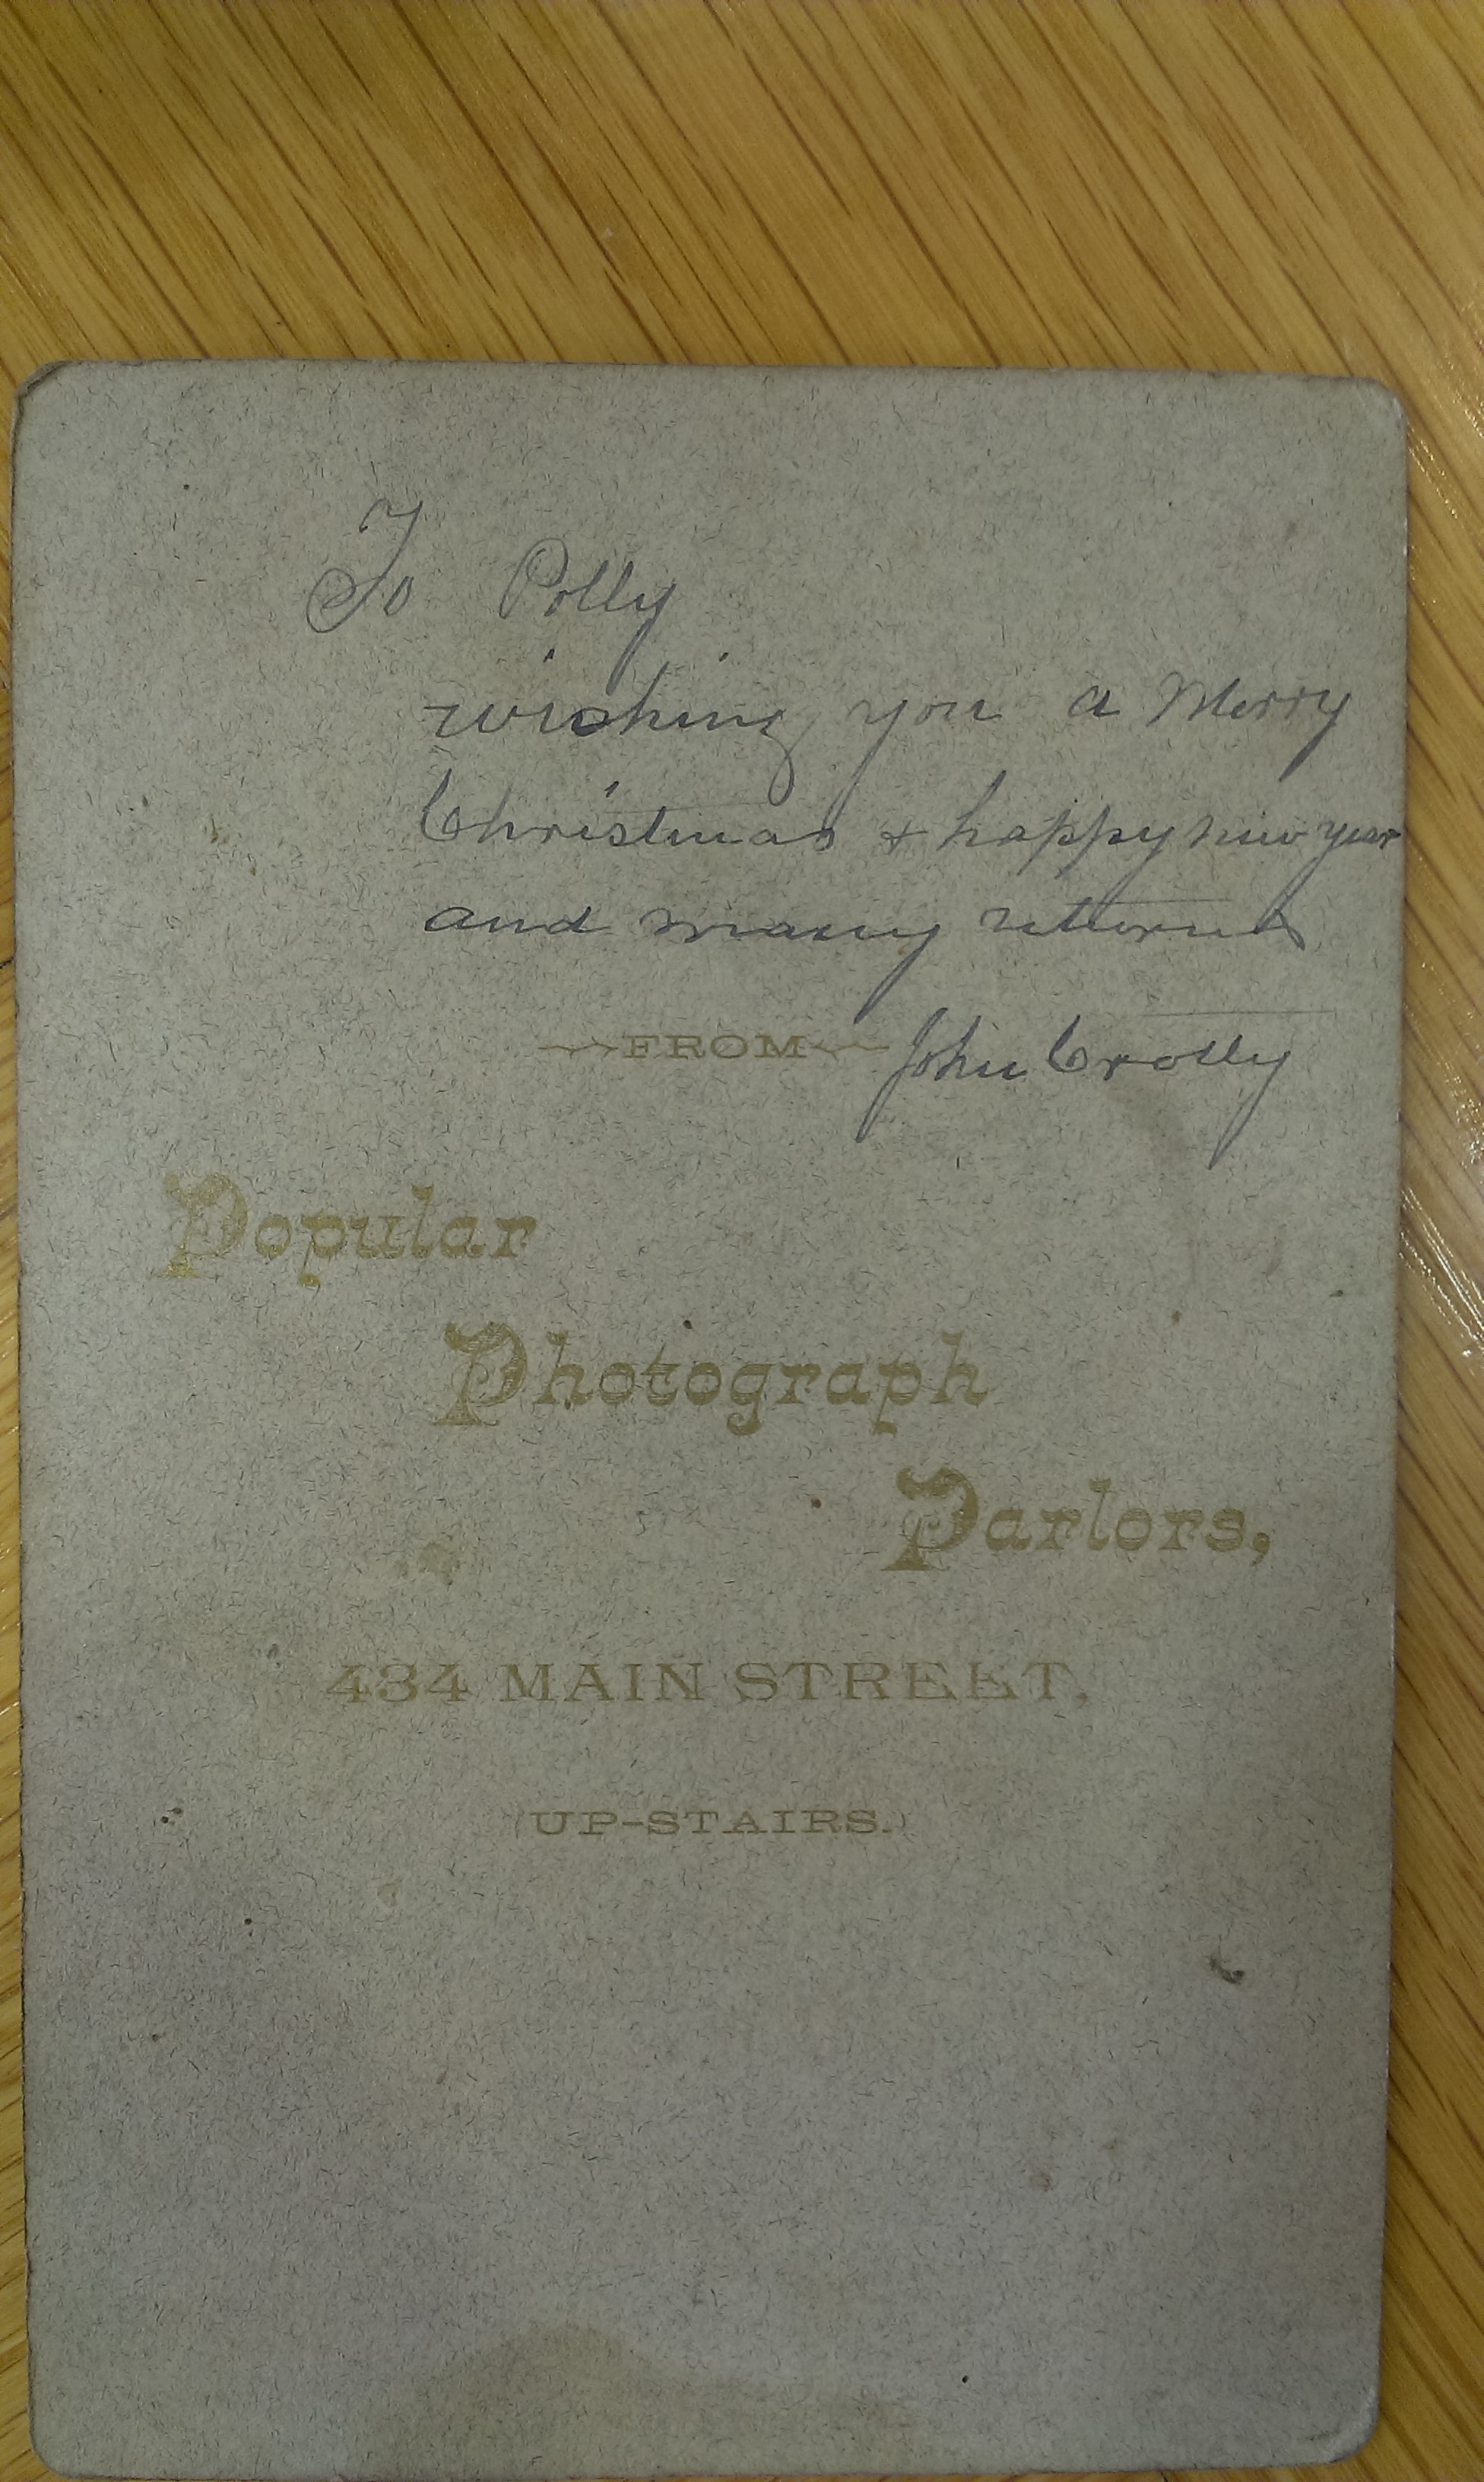 To Polly
wishing you a Merry
Christmas & happy new year
and many returns
FROM John Crolly
Popular
Photograph
Parlors,
434 MAIN STREET,
(UP-STAIRS.)